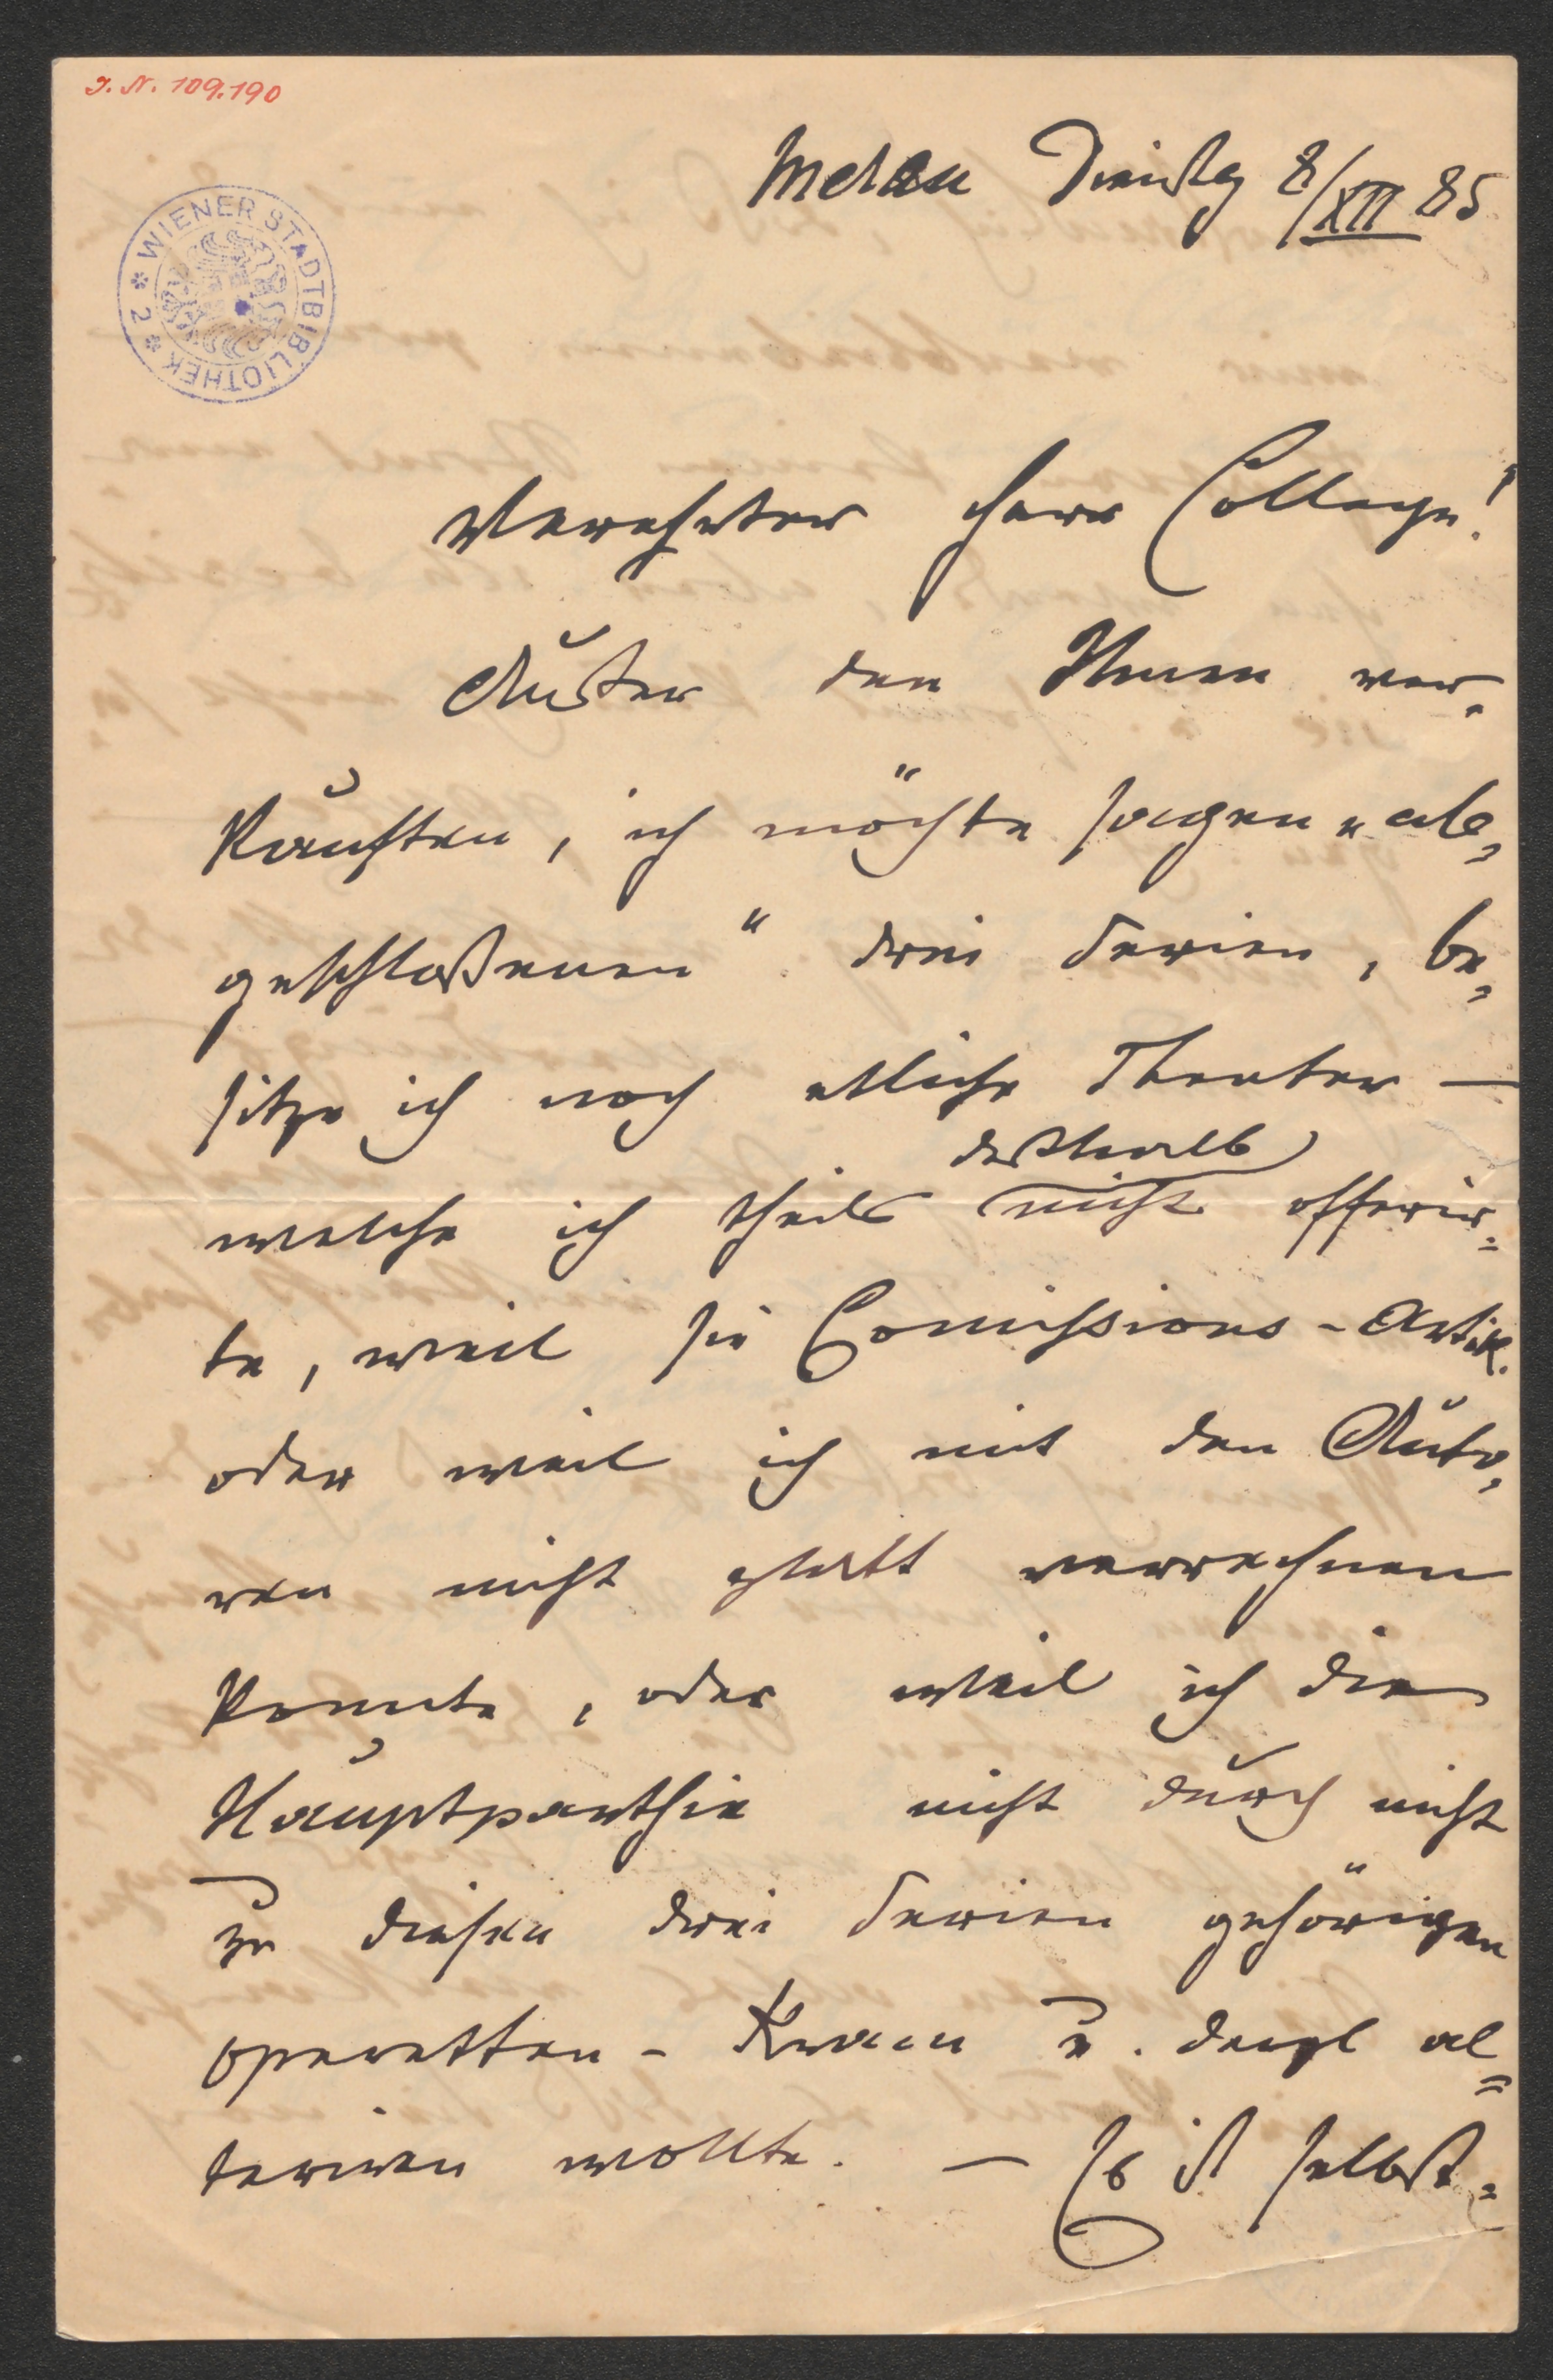 J. N. 109.190
WIENER STADTBIBLIOTHEK * 2 *
Meran Dienstag 8/XII 85
Verehrter Herr College!
Außer den Ihnen ver-
kauften, ich möchte sagen „ab-
geschloßenen" drei Serien, be-
sitze ich noch etliche Theater —
deßhalb
welche ich theils nicht offerir-
te, weil sie Comissions-Artik.
oder weil ich mit den Auto-
ren nicht glatt verrechnen
konnte, oder weil ich die
Hauptparthie nicht durch nicht
zu diesen drei Serien gehörigen
Operetten-Kram u. dergl al-
teriren wollte. — Es ist selbst-